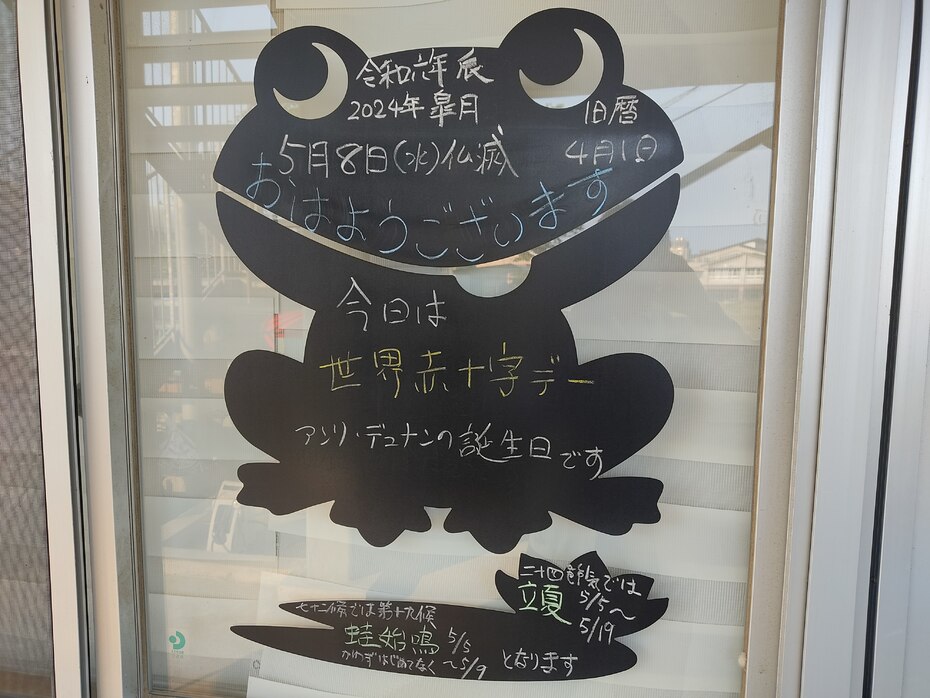 令和六年 辰
2024年 皐月
旧暦
5月8日(水)仏滅
4月1日
おはようございます
今日は
世界赤十字デー
アンリ・デュナンの誕生日です
二十四節気では
立夏 5/5〜
5/19
七十二候では第十九候
蛙始鳴 5/5
かわずはじめてなく 〜5/9
となります